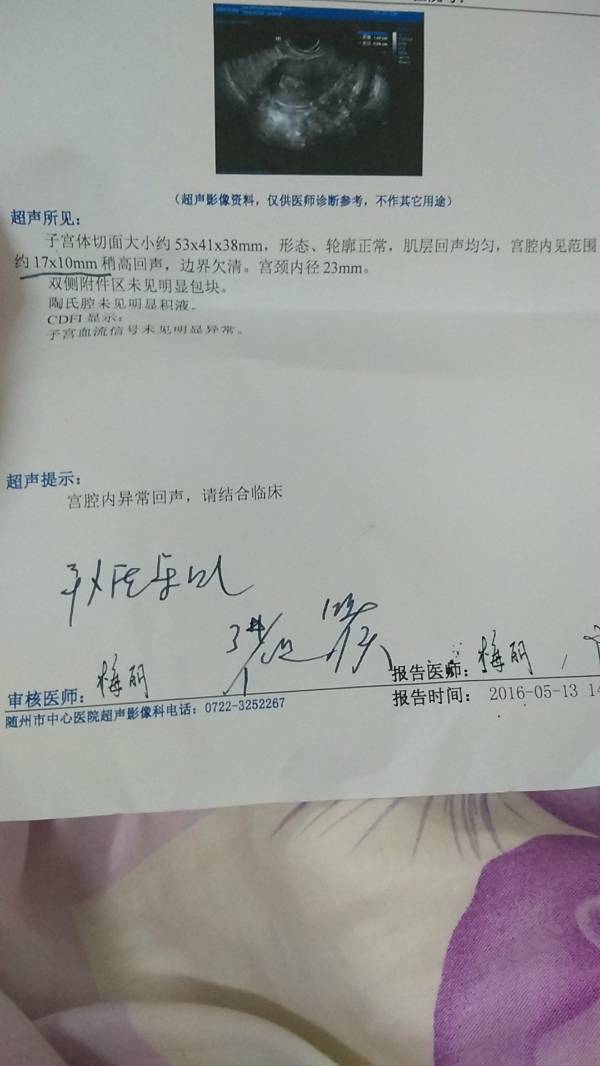 （超声影像资料，仅供医师诊断参考，不作其它用途）
超声所见：
子宫体切面大小约53x41x38mm，形态、轮廓正常，肌层回声均匀，宫腔内见范围
约17x10mm稍高回声，边界欠清。宫颈内径23mm。
双侧附件区未见明显包块。
陶氏腔未见明显积液。
CDFI显示：
子宫血流信号未见明显异常。
超声提示：
宫腔内异常回声，请结合临床
审核医师：梅丽
报告医师：梅丽
随州市中心医院超声影像科电话：0722-3252267
报告时间： 2016-05-13 14